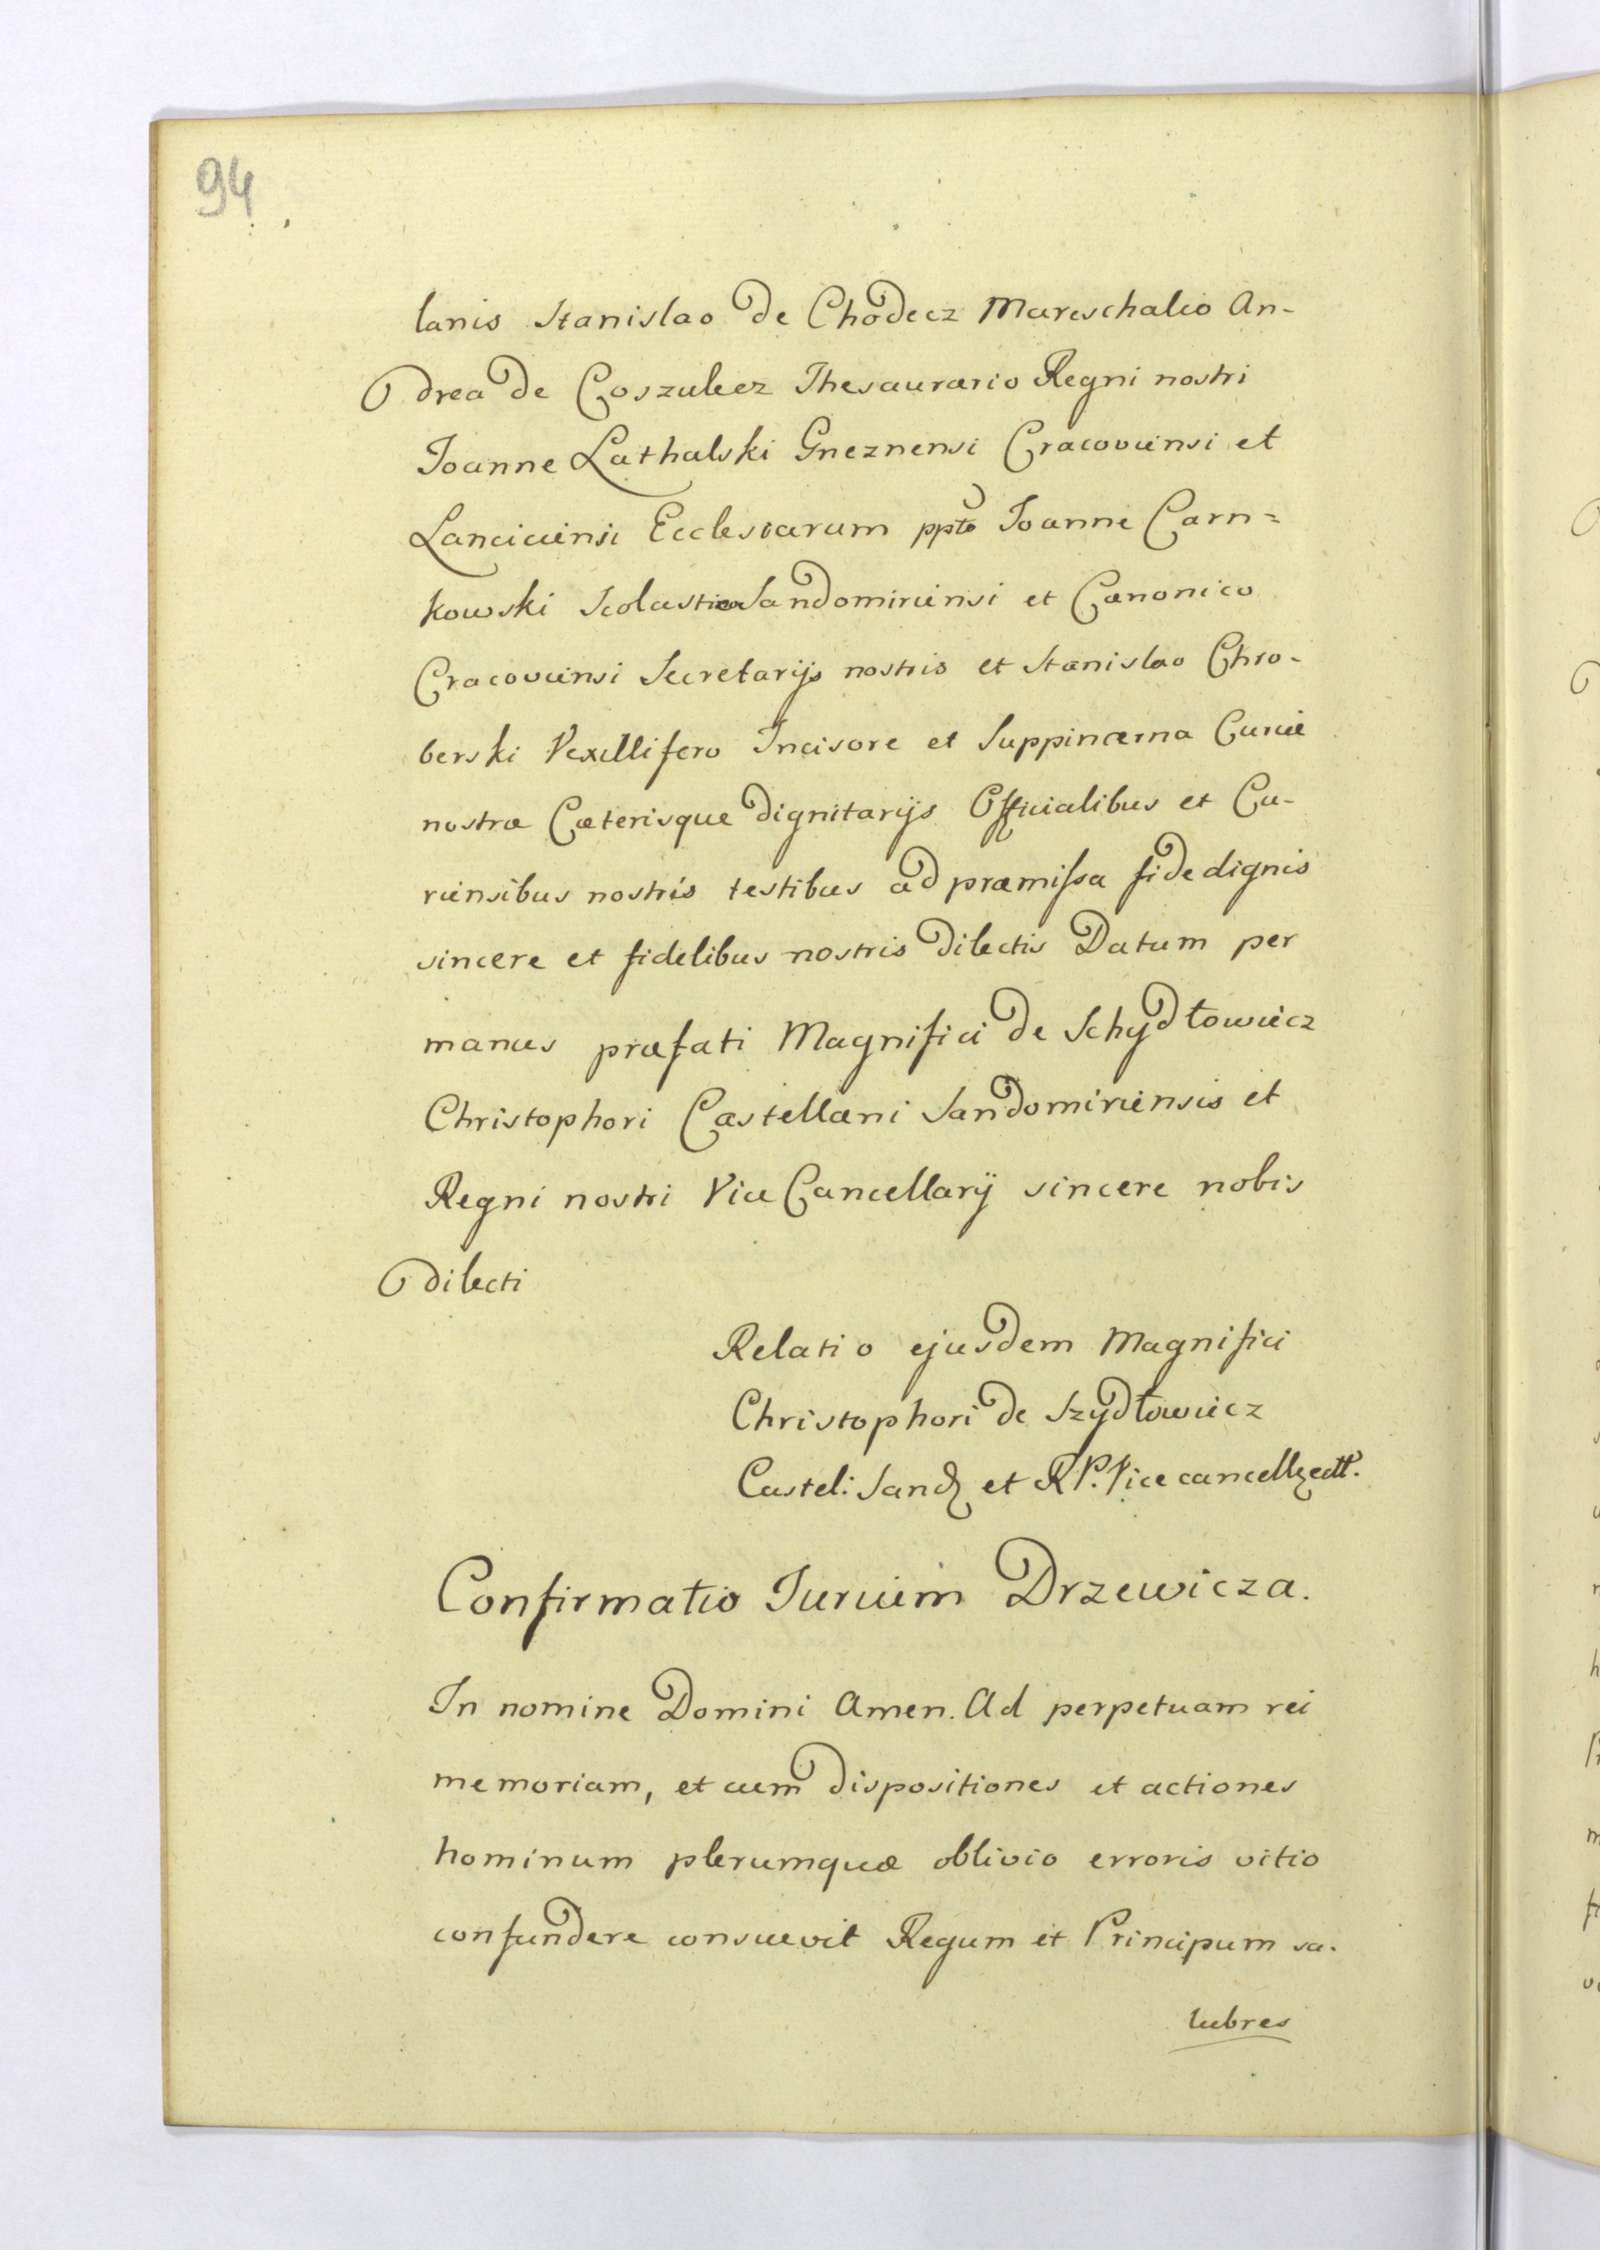 94
lanis Stanislao de Chodecz Mareschalco An-
drea de Coszulecz Thesaurario Regni nostri
Joanne Lathalski Gneznensi Cracoviensi et
Lanciciensi Ecclesiarum ppto Joanne Carn=
kowski Scolastico Sandomiriensi et Canonico
Cracoviensi Secretarijs nostris et Stanislao Chro-
berski Vexillifero Incisore et Suppincerna Curiæ
nostræ Cæterisque dignitarijs Officialibus et Cu-
riensibus nostris testibus ad præmissa fide dignis
sincere et fidelibus nostris dilectis Datum per
manus præfati Magnifici de Schydłowiecz
Christophori Castellani Sandomiriensis et
Regni nostri Vice Cancellarij sincere nobis
dilecti
Relatio ejusdem Magnifici
Christophori de Szydłowiecz
Castel: Sand et R P. Vice cancell
Confirmatio Jurium Drzewicza.
In nomine Domini Amen. Ad perpetuam rei
memoriam, et cum dispositiones et actiones
hominum plerumquæ oblivio erroris vitio
confundere consuevit Regum et Principum sa-
lubres